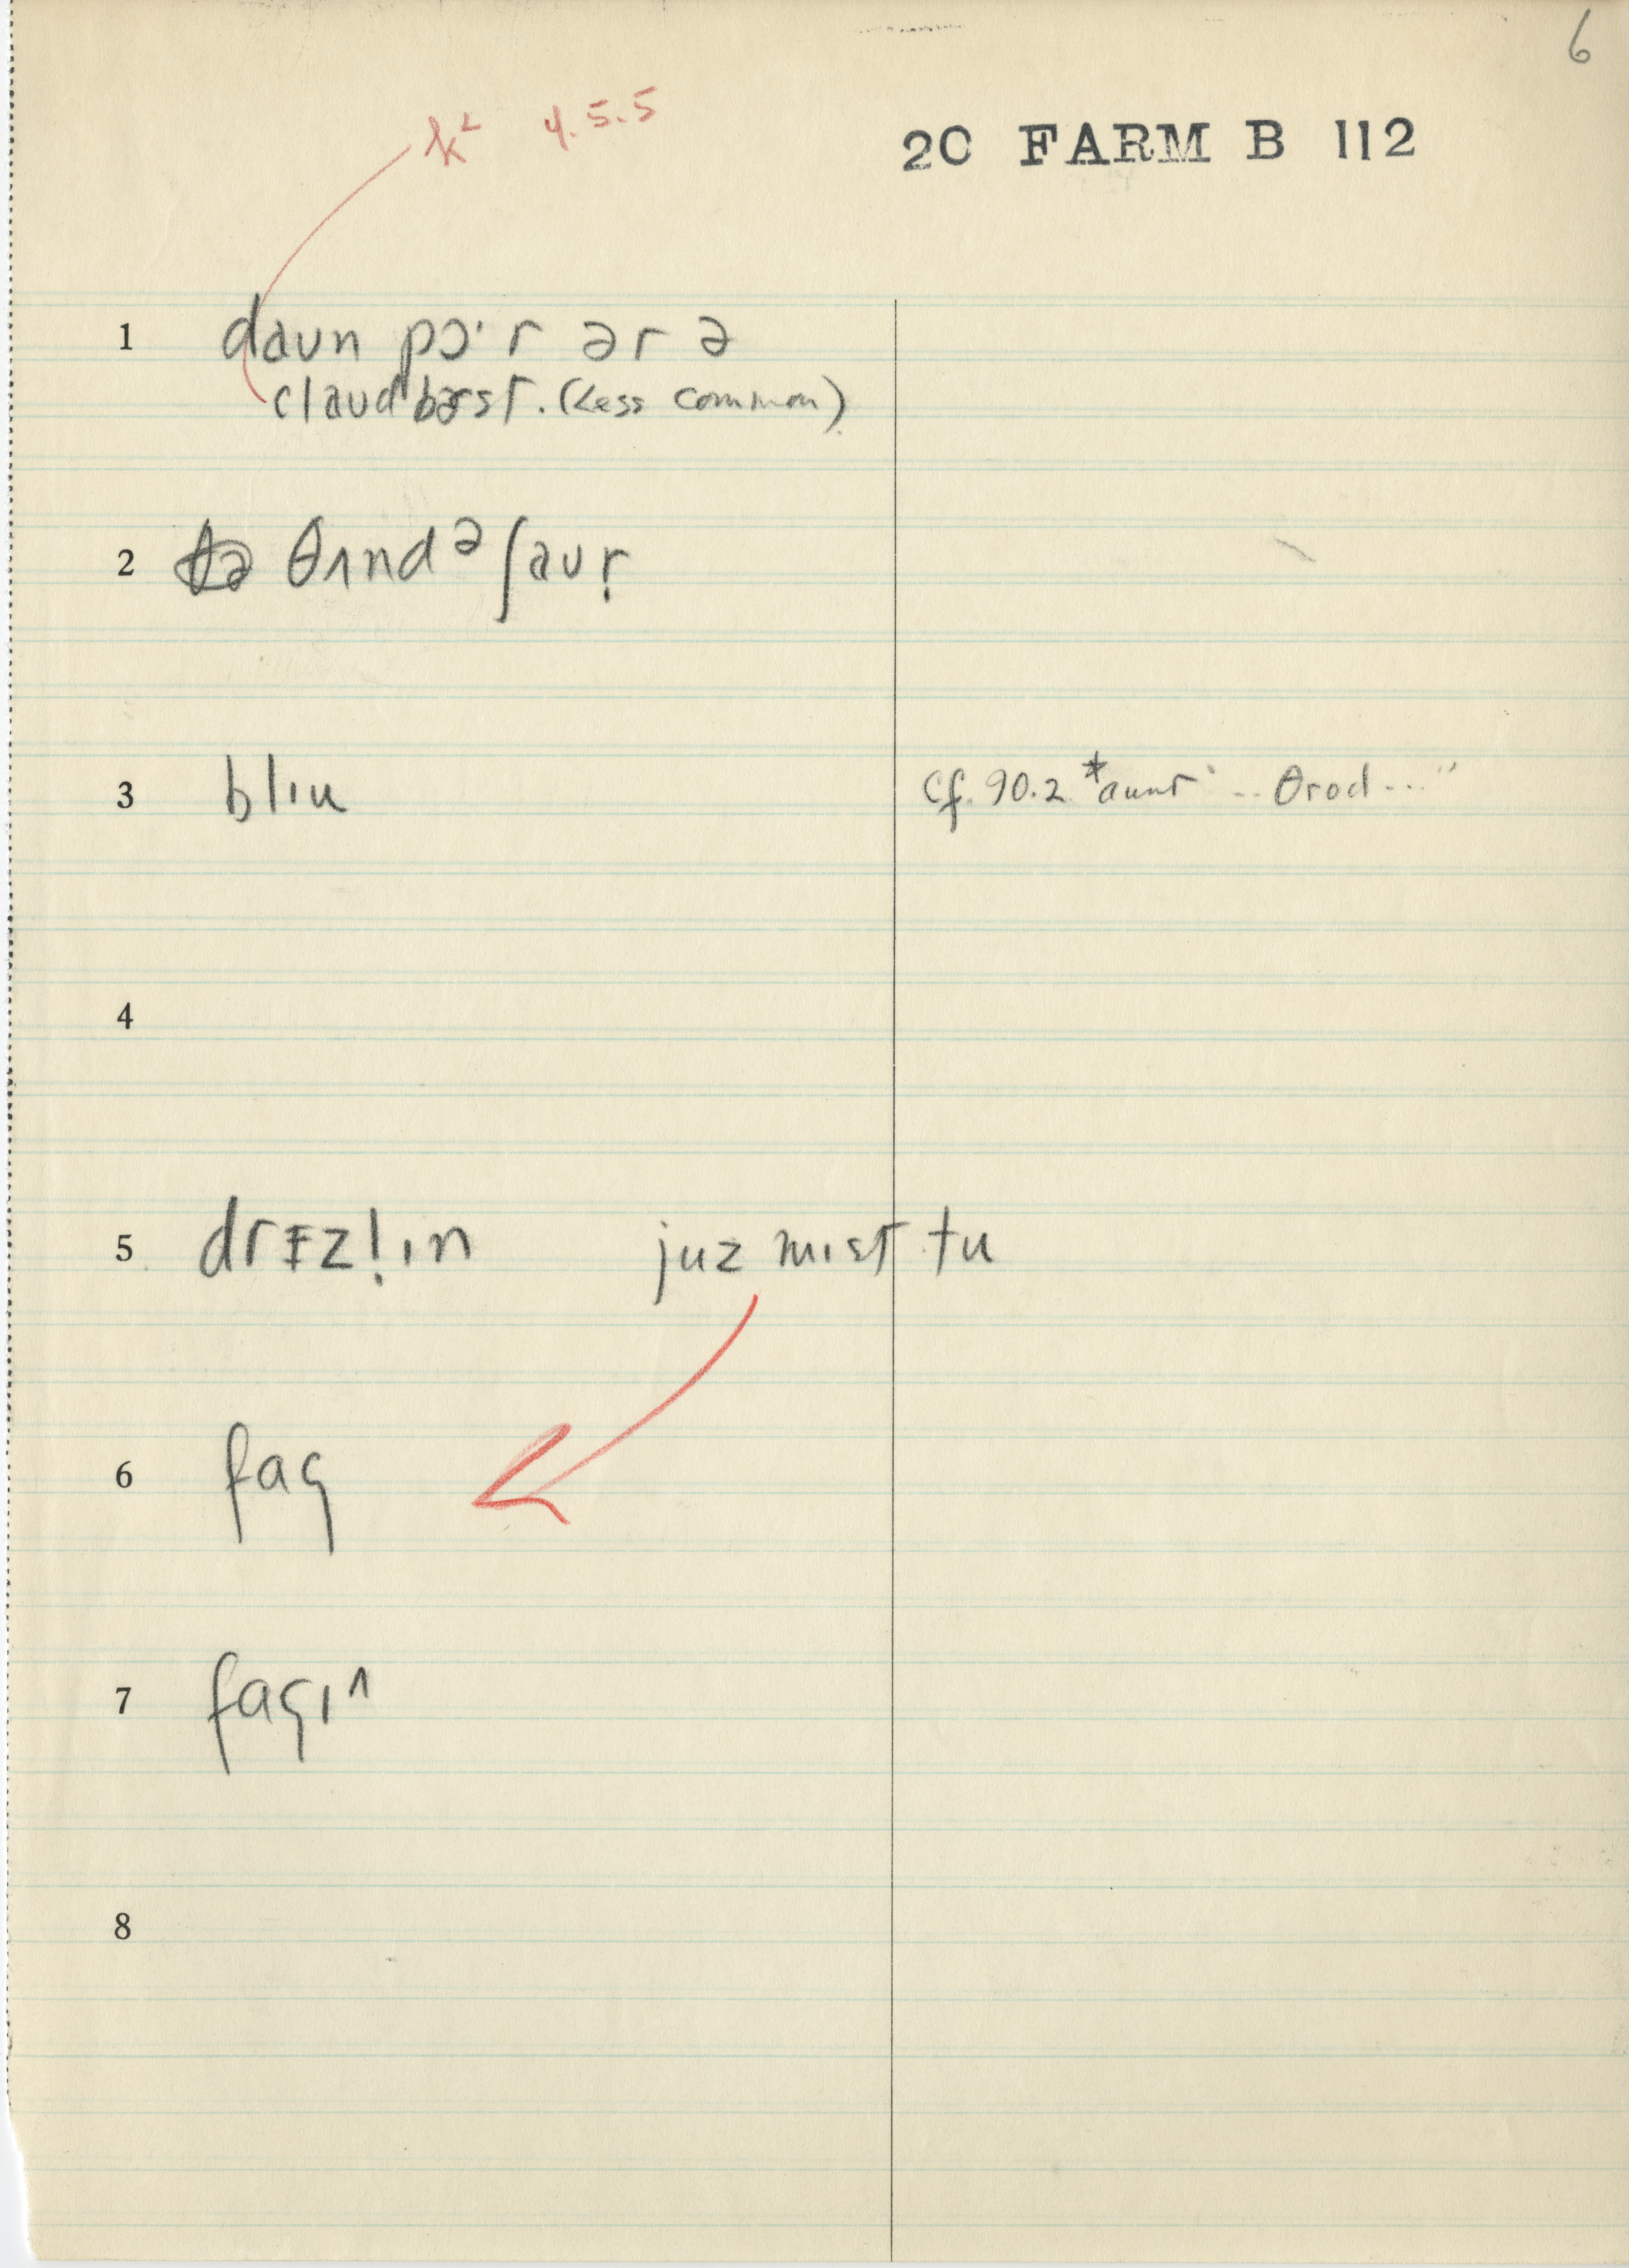 6
k² 4.5.5
20 FARM B 112
1 daun pɔ·r ər ə
claud bərst. (Less common)
2 θʌndəʃaur̩
3 blıu cf. 90.2 *aunt "-- θrod..."
4
5 drɪzl̩ın juz mıst tu
6 fag
7 fagı^
8